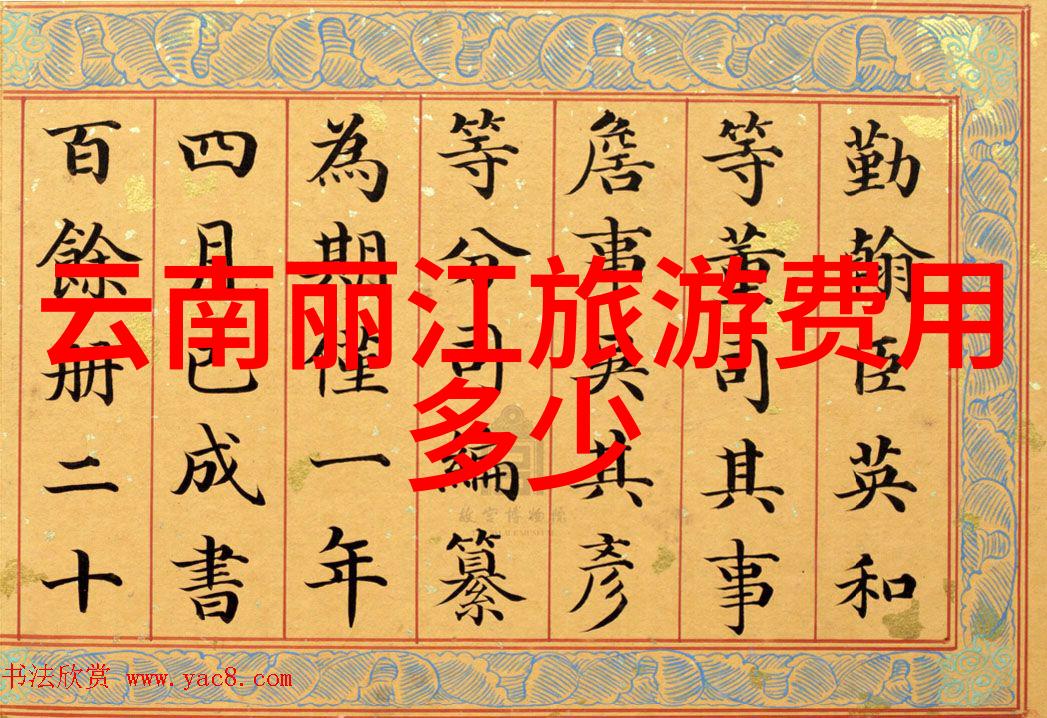 云南丽江旅游费用
多少
勤翰臣英和
等董司其事
詹事吳其彥
等分司編纂
為期僅一年
四月已成書
百餘册二十
故宫博物院
书法欣赏 www.yac8.com